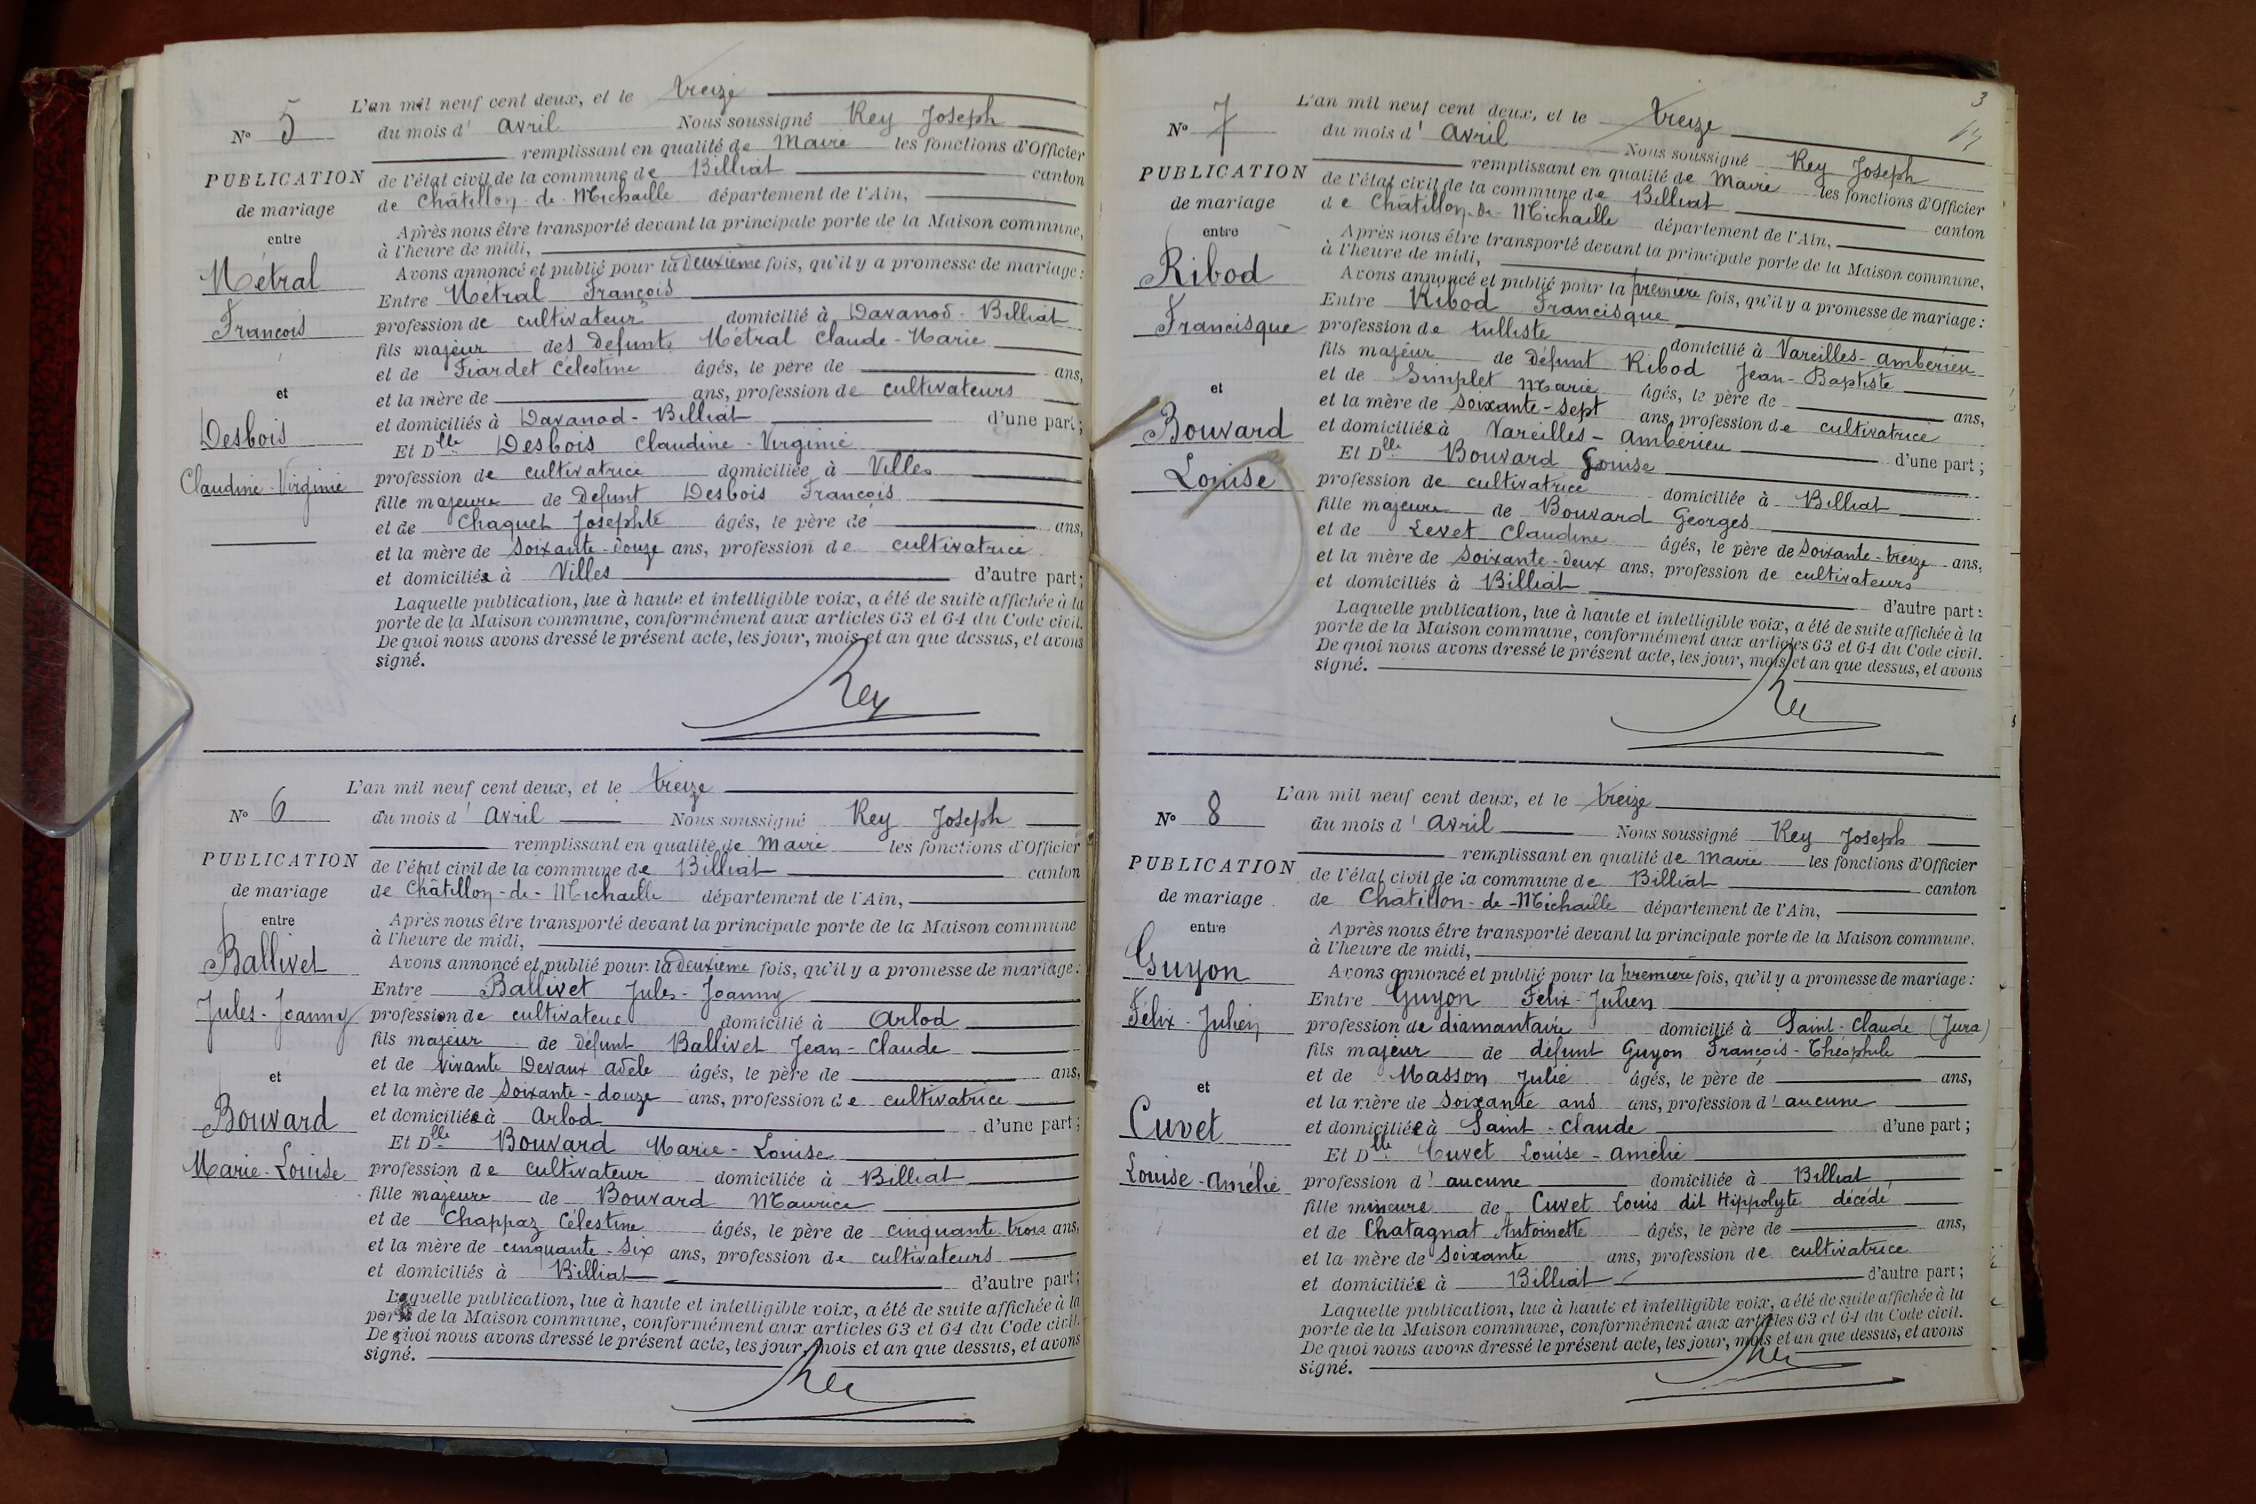 L'an mil neuf cent deux, et le treize
N° 5 du mois d' avril Nous soussigné Rey Joseph
remplissant en qualité de Maire les fonctions d'Officier
PUBLICATION de l'état civil de la commune de Billiat canton
de mariage de Châtillon-de-Michaille département de l'Ain,
entre Après nous être transporté devant la principale porte de la Maison commune,
à l'heure de midi,
Métral Avons annoncé et publié pour la deuxième fois, qu'il y a promesse de mariage :
Entre Métral François
François profession de cultivateur domicilié à Davanod-Billiat
fils majeur des défunts Métral Claude-Marie
et de Fiardet Célestine âgés, le père de ans,
et et la mère de ans, profession de cultivateurs
et domiciliés à Davanod-Billiat d'une part ;
Desbois Et Dlle Desbois Claudine-Virginie
Claudine-Virginie profession de cultivatrice domiciliée à Villes
fille majeure de défunt Desbois François
et de Chaquet Josephte âgés, le père de ans,
et la mère de soixante-douze ans, profession de cultivatrice
et domiciliée à Villes d'autre part ;
Laquelle publication, lue à haute et intelligible voix, a été de suite affichée à la
porte de la Maison commune, conformément aux articles 63 et 64 du Code civil.
De quoi nous avons dressé le présent acte, les jour, mois et an que dessus, et avons
signé.
Rey
L'an mil neuf cent deux, et le treize
N° 6 du mois d' avril Nous soussigné Rey Joseph
remplissant en qualité de Maire les fonctions d'Officier
PUBLICATION de l'état civil de la commune de Billiat canton
de mariage de Châtillon-de-Michaille département de l'Ain,
entre Après nous être transporté devant la principale porte de la Maison commune
à l'heure de midi,
Ballivet Avons annoncé et publié pour la deuxième fois, qu'il y a promesse de mariage :
Entre Ballivet Jules-Joanny
Jules-Joanny profession de cultivateur domicilié à Arlod
fils majeur de défunt Ballivet Jean-Claude
et de vivante Devaux adèle âgés, le père de ans,
et et la mère de soixante-douze ans, profession de cultivatrice
Bouvard et domiciliée à Arlod d'une part ;
Et Dlle Bouvard Marie-Louise
Marie-Louise profession de cultivateur domiciliée à Billiat
fille majeure de Bouvard Maurice
et de Chappaz Célestine âgés, le père de cinquante-trois ans,
et la mère de cinquante-six ans, profession de cultivateurs
et domiciliés à Billiat d'autre part ;
Laquelle publication, lue à haute et intelligible voix, a été de suite affichée à la
porte de la Maison commune, conformément aux articles 63 et 64 du Code civil.
De quoi nous avons dressé le présent acte, les jour, mois et an que dessus, et avons
signé.
Rey
3
L'an mil neuf cent deux, et le treize
N° 7 du mois d' avril Nous soussigné Rey Joseph
remplissant en qualité de Maire les fonctions d'Officier
PUBLICATION de l'état civil de la commune de Billiat canton
de mariage de Châtillon-de-Michaille département de l'Ain,
entre Après nous être transporté devant la principale porte de la Maison commune,
à l'heure de midi,
Ribod Avons annoncé et publié pour la première fois, qu'il y a promesse de mariage :
Entre Ribod Francisque
Francisque profession de tulliste domicilié à Vareilles-Ambérieu
fils majeur de défunt Ribod Jean-Baptiste
et de Simplet Marie âgés, le père de ans,
et et la mère de soixante-sept ans, profession de cultivatrice
Bouvard et domiciliée à Vareilles-Ambérieu d'une part ;
Et Dlle Bouvard Louise
Louise profession de cultivatrice domiciliée à Billiat
fille majeure de Bouvard Georges
et de Levet Claudine âgés, le père de soixante-treize ans,
et la mère de soixante-deux ans, profession de cultivateurs
et domiciliés à Billiat d'autre part :
Laquelle publication, lue à haute et intelligible voix, a été de suite affichée à la
porte de la Maison commune, conformément aux articles 63 et 64 du Code civil.
De quoi nous avons dressé le présent acte, les jour, mois et an que dessus, et avons
signé.
Rey
L'an mil neuf cent deux, et le treize
N° 8 du mois d' avril Nous soussigné Rey Joseph
remplissant en qualité de Maire les fonctions d'Officier
PUBLICATION de l'état civil de la commune de Billiat canton
de mariage de Châtillon-de-Michaille département de l'Ain,
entre Après nous être transporté devant la principale porte de la Maison commune.
à l'heure de midi,
Guyon Avons annoncé et publié pour la première fois, qu'il y a promesse de mariage :
Entre Guyon Félix-Julien
Félix-Julien profession de diamantaire domicilié à Saint-Claude (Jura)
fils majeur de défunt Guyon François-Théophile
et de Masson Julie âgés, le père de ans,
et et la mère de soixante ans ans, profession d' aucune
Cuvet et domiciliée à Saint-Claude d'une part ;
Et Dlle Cuvet Louise-Amélie
Louise-Amélie profession d' aucune domiciliée à Billiat
fille mineure de Cuvet Louis dit Hippolyte décédé
et de Chatagnat Antoinette âgés, le père de ans,
et la mère de soixante ans, profession de cultivatrice
et domiciliée à Billiat d'autre part ;
Laquelle publication, lue à haute et intelligible voix, a été de suite affichée à la
porte de la Maison commune, conformément aux articles 63 et 64 du Code civil.
De quoi nous avons dressé le présent acte, les jour, mois et an que dessus, et avons
signé.
Rey